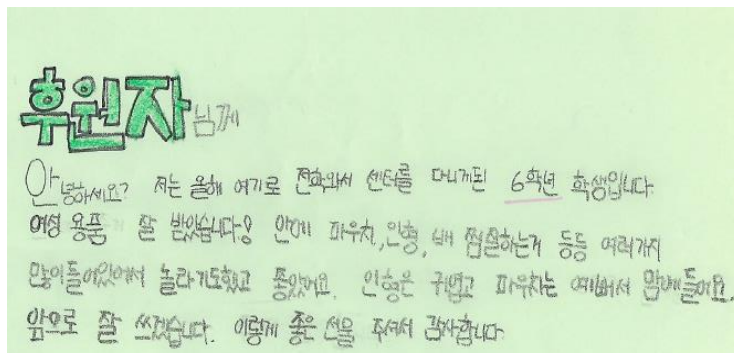 후원자님께
안녕하세요? 저는 올해 여기로 전학와서 센터를 다니게된 6학년 학생입니다.
여성 용품 잘 받았습니다! 안에 파우치, 인형, 배 찜질하는거 등등 여러가지
많이들어있어서 놀라기도했고 좋았어요. 인형은 귀엽고 파우치는 예뻐서 맘에들어요.
앞으로 잘 쓰겠습니다. 이렇게 좋은 선물 주셔서 감사합니다.